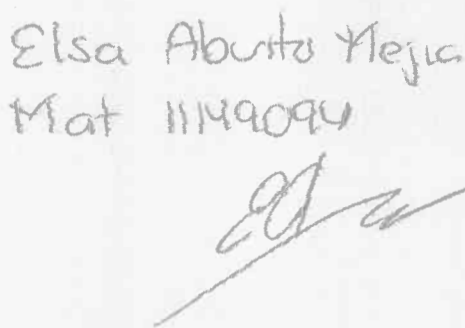 Elsa Aburto Mejia
Mat 11149094